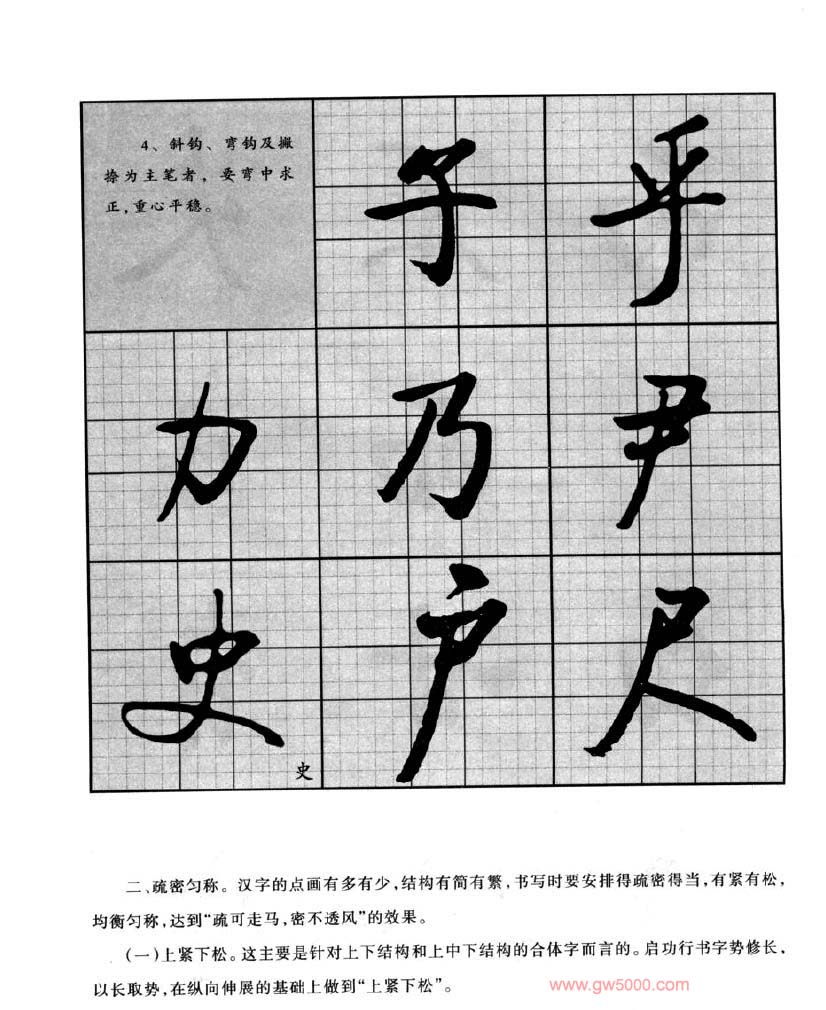 4、斜钩、弯钩及撇
捺为主笔者，要弯中求
正，重心平稳。
子
乎
力
乃
尹
史
户
尺
史
二、疏密匀称。汉字的点画有多有少，结构有简有繁，书写时要安排得疏密得当，有紧有松，
均衡匀称，达到“疏可走马，密不透风”的效果。
(一)上紧下松。这主要是针对上下结构和上中下结构的合体字而言的。启功行书字势修长，
以长取势，在纵向伸展的基础上做到“上紧下松”。
www.gw5000.com